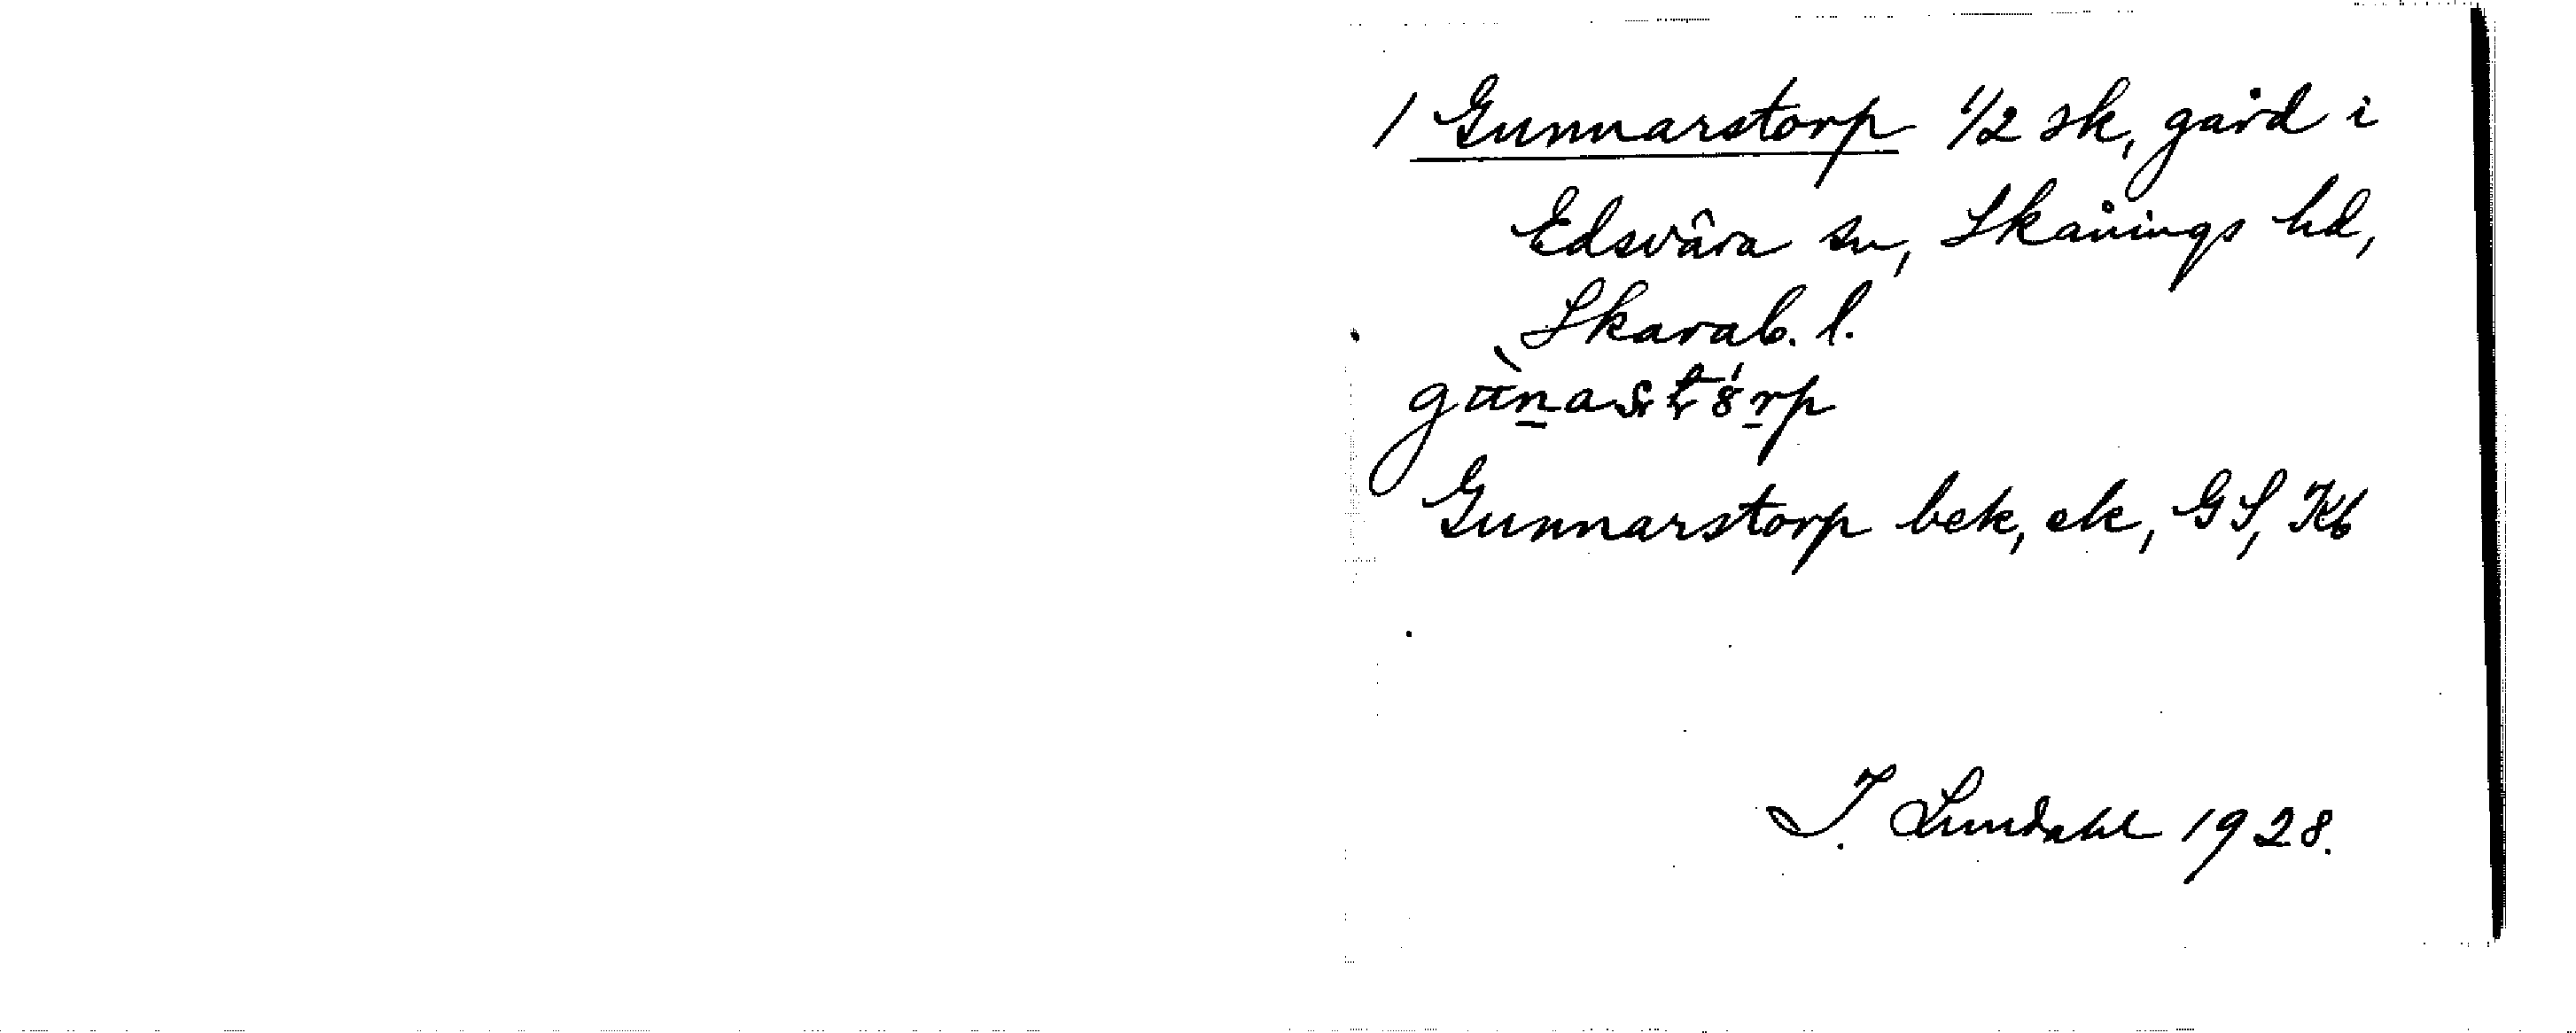 1 Gunnarstorp 1/2 sk, gård i
Edsvära sn, Skånings hd,
Skarab. l.
Gunnarstorp bek, ek, GS, Kb
I. Lundahl 1928.